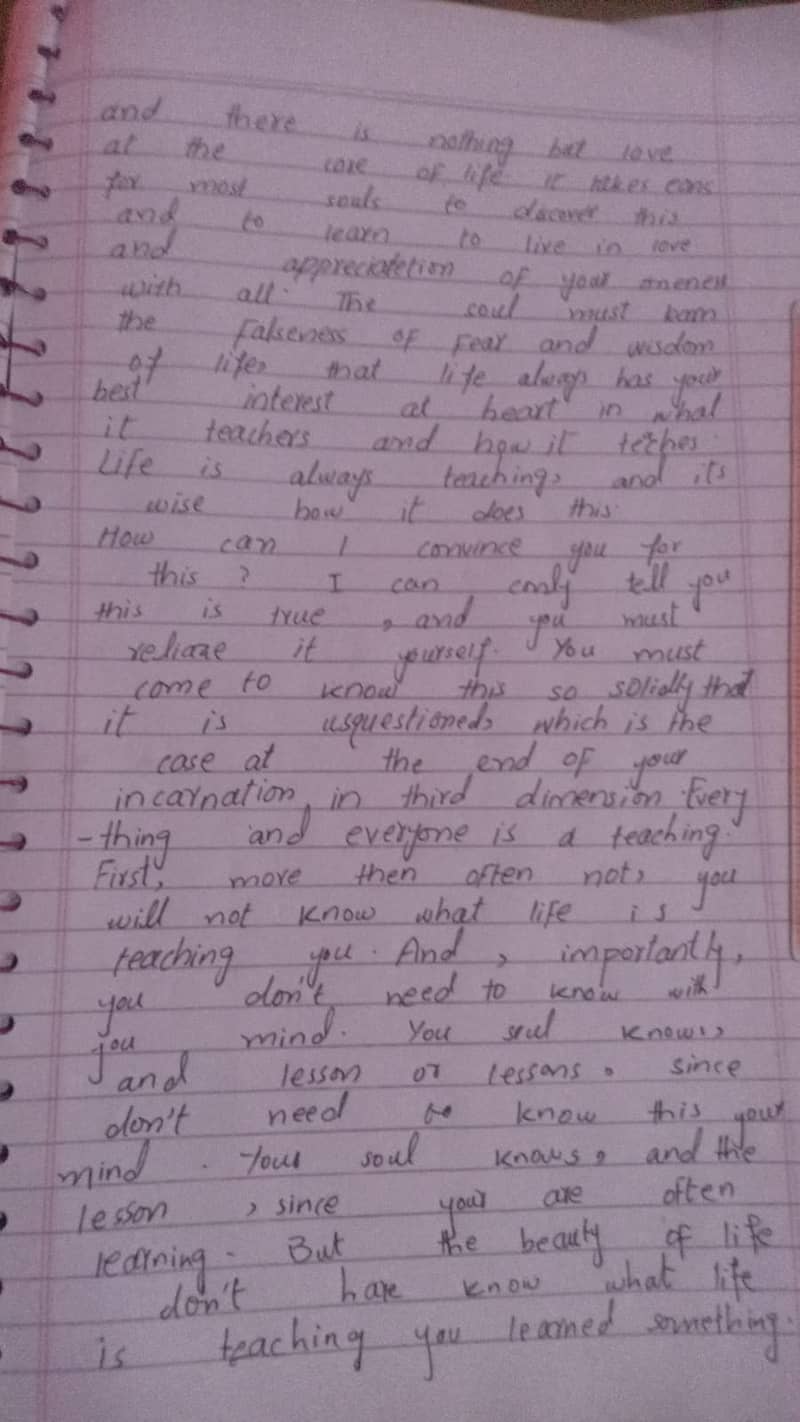 and there is nothing but love
at the core of life it takes eons
for most souls to discover this
and to learn to live in love
and appreciatetion of your oneness
with all. The soul must learn
the Falseness of Fear and wisdom
of life, that life always has your
best interest at heart in what
it teachers and how it teches.
Life is always teaching, and its
wise how it does this.
How can I convince you for
this ? I can only tell you
this is true , and you must
reliaze it yourself. You must
come to know this so solidly that
it is usquestioned, which is the
case at the end of your
incarnation, in third dimension. Every
-thing and everyone is a teaching.
First, more then often not, you
will not know what life is
teaching you. And , importantly,
you don't need to know with
you mind. You soul knows,
and lesson or lessons. since
don't need to know this your
mind . Your soul knows, and the
lesson , since your are often
learning. But the beauty of life
don't have know what life
is teaching you learned something.